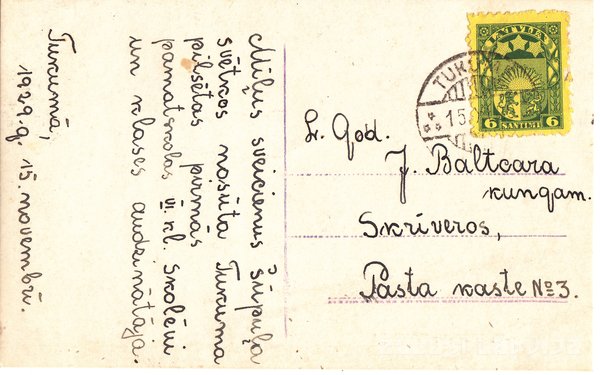 Mīļus sveicienus Šūpuļa
svētkos nosūta Tukuma
pilsētas pirmās
pamatskolas VI. kl. skolēni
un klases audzinātāja.
Tukumā,
1929.g. 15. novembrī.
LATVIJA
6 SANTIMI 6
TUKU
15.
Ļ. God.
J. Baltcara
kungam.
Skrīveros,
Pasta kaste No 3.